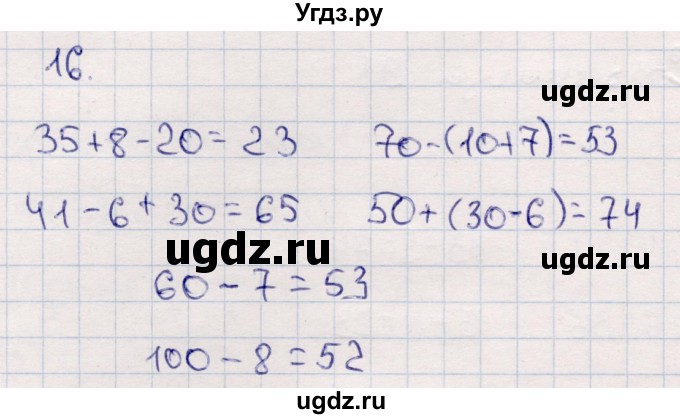 Угдз.ру
16.
ugdz.ru
35+8-20=23 70-(10+7)=53
41-6+30=65 50+(30-6)=74
ugdz.ru ugdz.ru
60-7=53
100-8=52
ugdz.ru